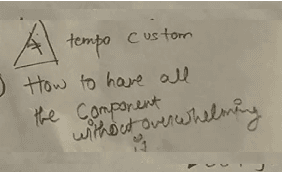 tempo custom
How to have all
the component
without overwhelming
it